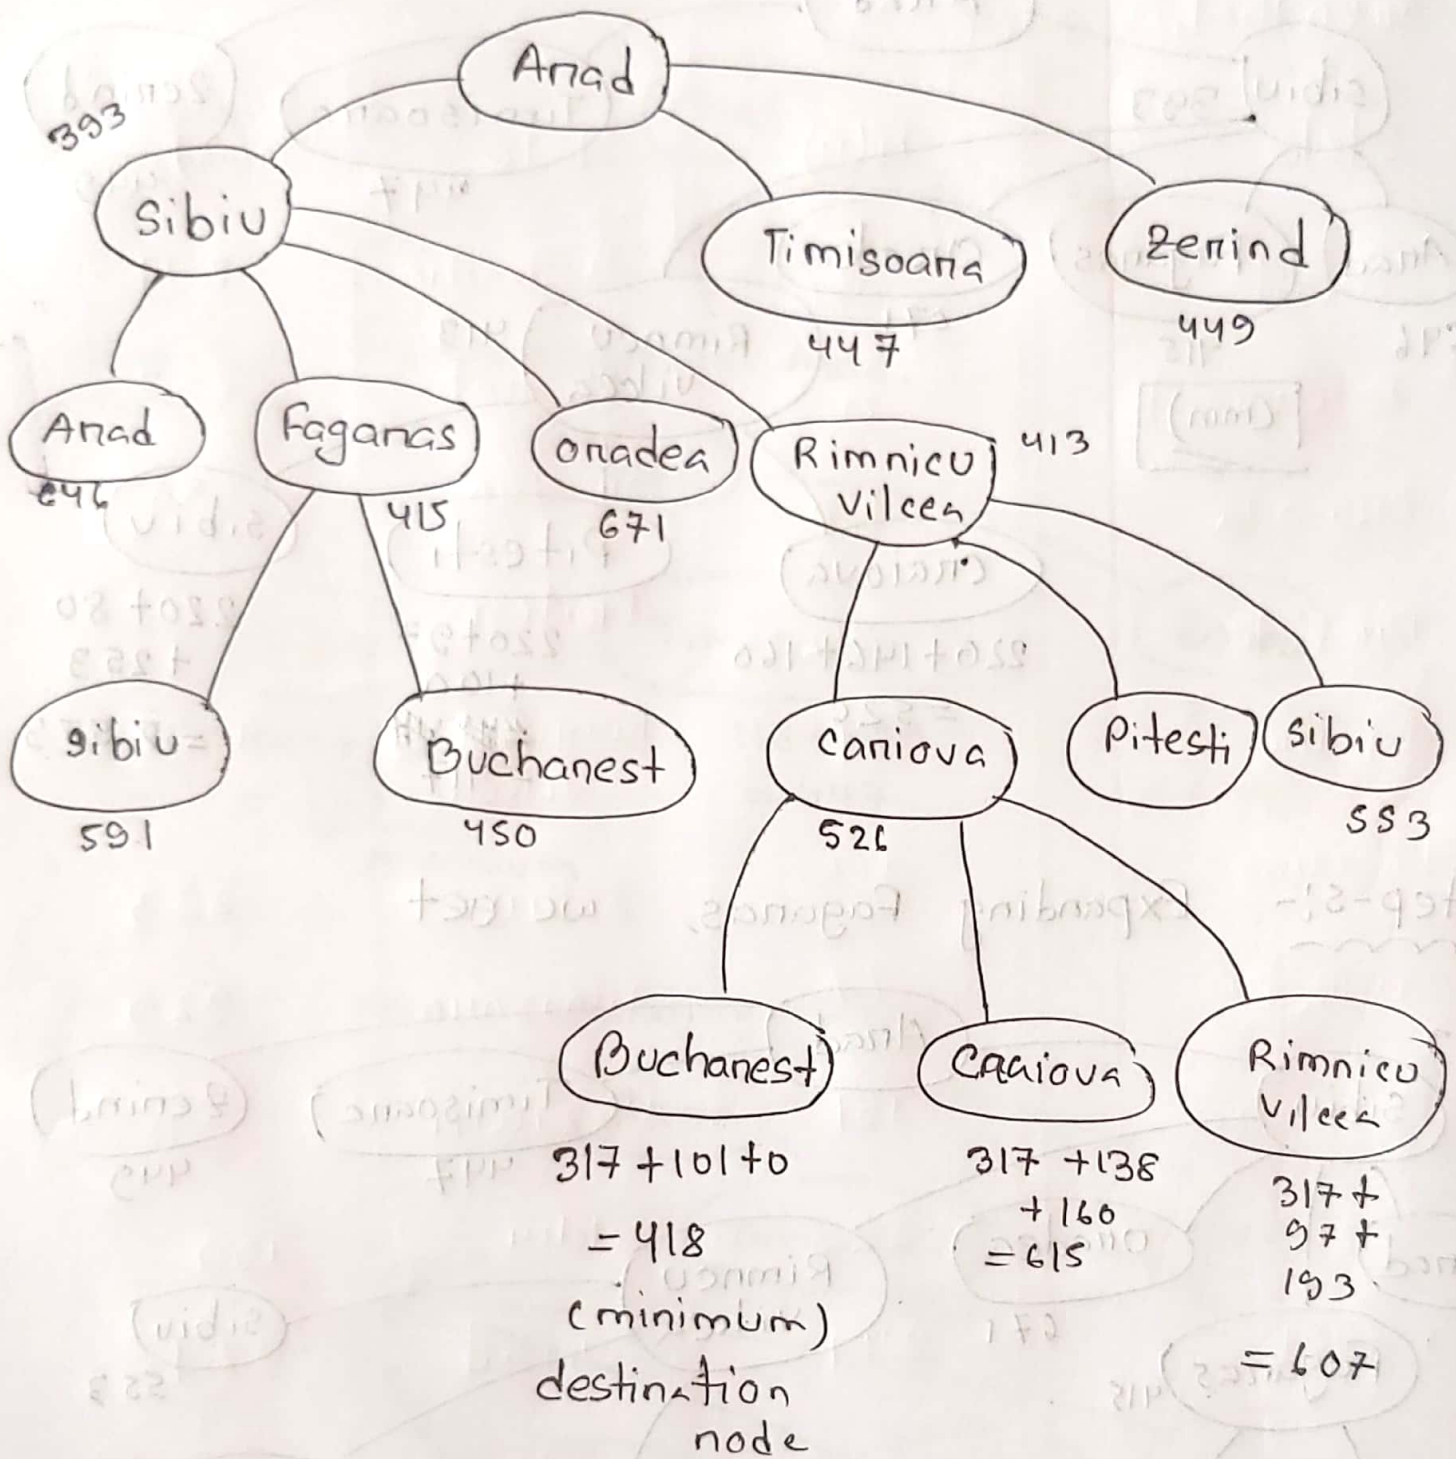 Anad
393
Sibiu
Timisoana
447
Zenind
449
Anad
646
Faganas
415
onadea
671
Rimnicu
Vilcea
413
Sibiu
591
Buchanest
450
Caniova
526
Pitesti
Sibiu
553
Buchanest
317 + 101 + 0
= 418
(minimum)
destination
node
Caaiova
317 + 138
+ 160
= 615
Rimnicu
Vilcea
317 +
97 +
193
= 607